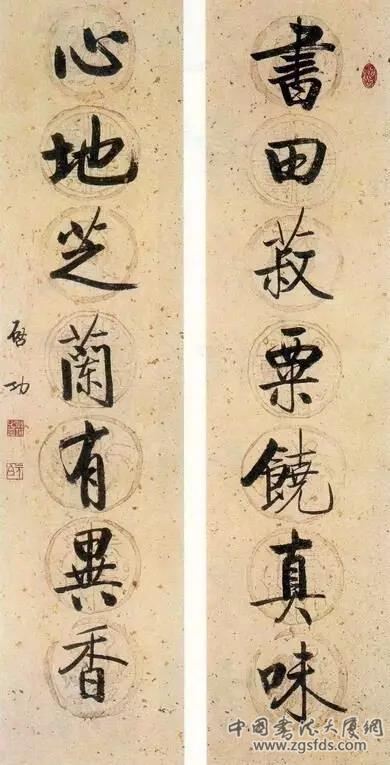 書田菽粟饒真味
心地芝蘭有異香
啓功
中国书法大厦網
www.zgsfds.com